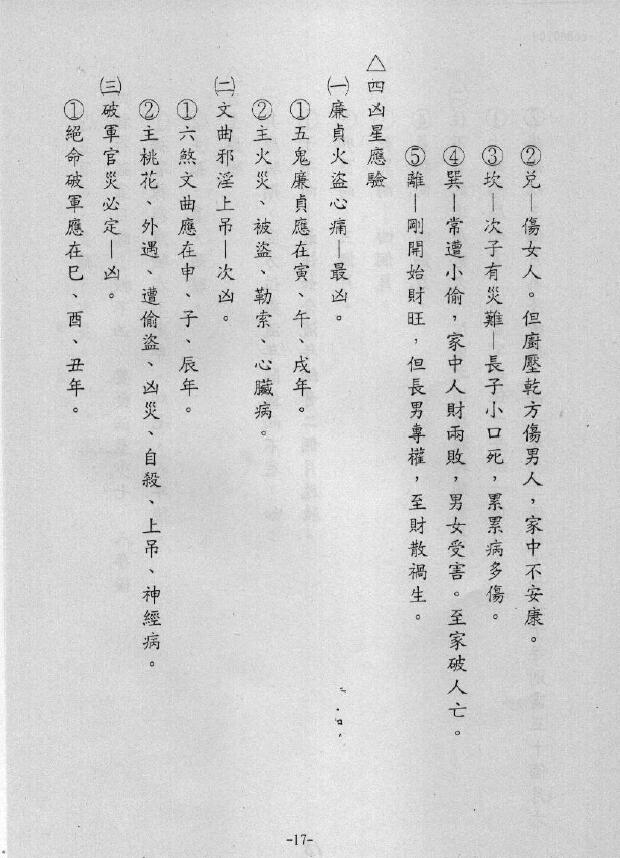 ②兌—傷女人。但廚壓乾方傷男人，家中不安康。
③坎—次子有災難—長子小口死，累累病多傷。
④巽—常遭小偷，家中人財兩敗，男女受害。至家破人亡。
⑤離—剛開始財旺，但長男專權，至財散禍生。
△四凶星應驗
㈠廉貞火盜心痛—最凶。
①五鬼廉貞應在寅、午、戌年。
②主火災、被盜、勒索、心臟病。
㈡文曲邪淫上吊—次凶。
①六煞文曲應在申、子、辰年。
②主桃花、外遇、遭偷盜、凶災、自殺、上吊、神經病。
㈢破軍官災必定—凶。
①絕命破軍應在巳、酉、丑年。
-17-